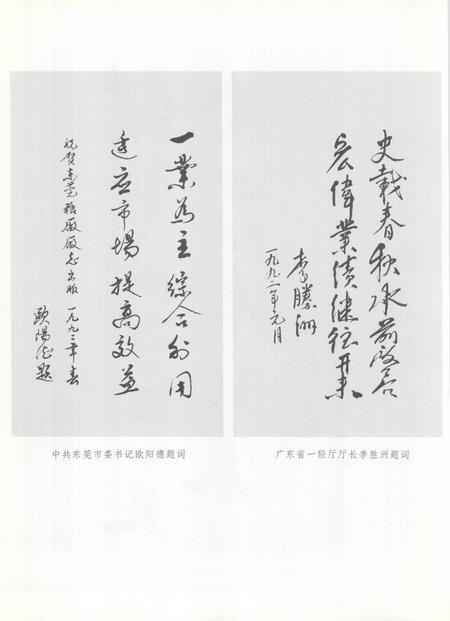 一業為主 綜合利用
适应市場 提高效益
祝贺东莞糖厰厰志出版 一九九二年春
欧陽德題
中共东莞市委书记欧阳德题词
史載春秋承前啓后
宏偉業績継往开来
李勝洲
一九九二年元月
广东省一轻厅厅长李胜洲题词